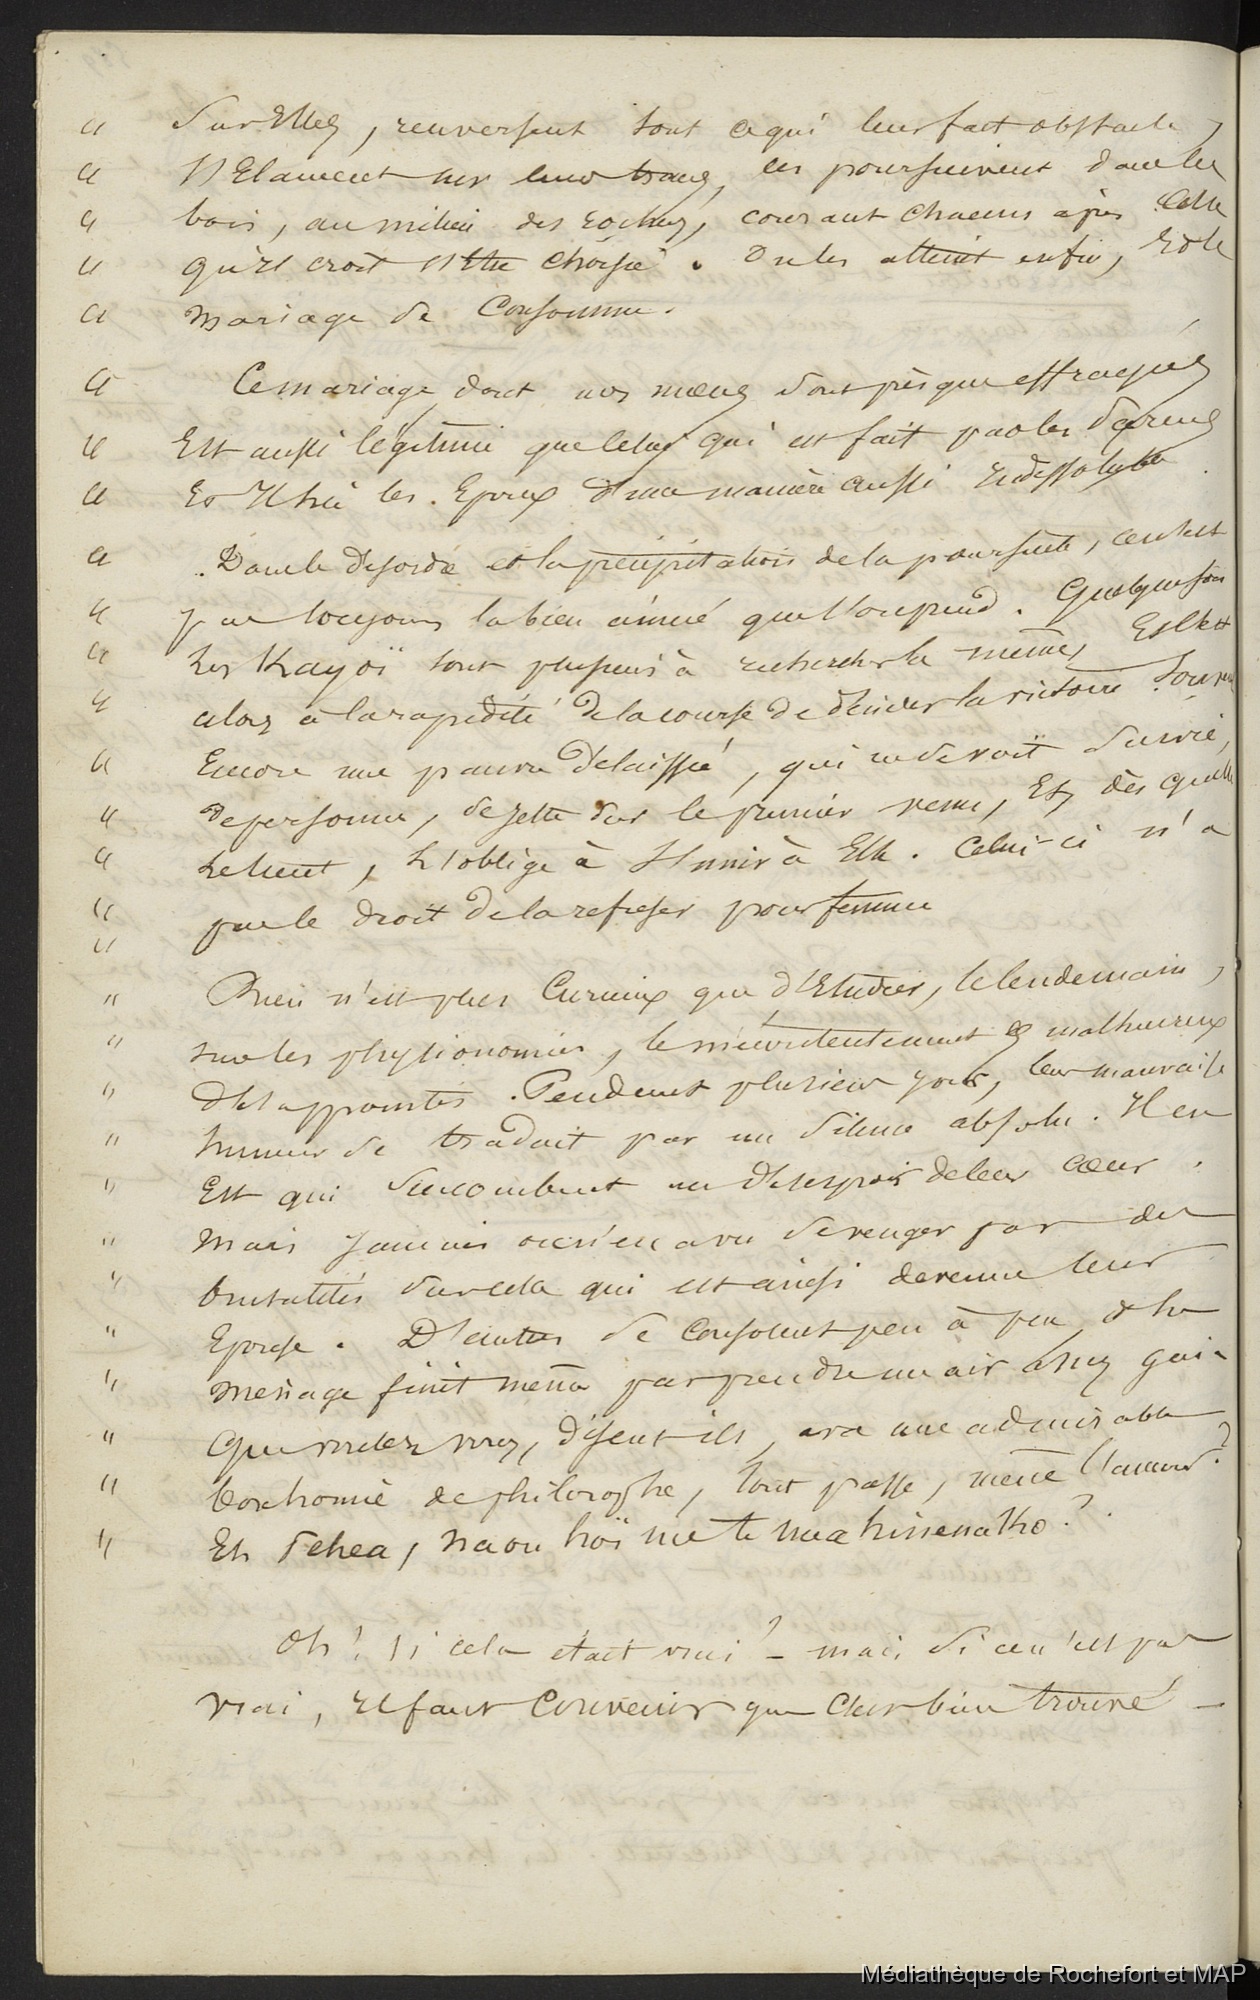 " sur Elles, renversent tout ce qui leur fait obstacle,
" s'Elancent sur leurs traces, les poursuivent dans les
" bois, au milieu des rochers, courant chacun après celle
" qu'il croit être choisie. On les atteint enfin, Et le
" mariage se consomme.
" Ce mariage dont nos mœurs sont presque effrayées
" Est aussi légitime que celui qui est fait par les
" Et Il lie les Epoux d'une manière aussi indissoluble.
" Dans le désordre et la précipitation de la poursuite, ce n'est
" pas toujours la bien aimée que l'on prend. Quelquefois
" les Kayoï sont plusieurs à rechercher la même, Et c'est
" alors à la rapidité de la course de décider la victoire. Souvent
" Encore une pauvre délaissée, qui ne se voit suivie,
" de personne, se jette sur le premier venu, Et, dès qu'elle
" le tient, l'oblige à s'unir à Elle. Celui-ci n'a
" pas le droit de la refuser pour femme
"
" Rien n'est plus curieux que d'Etudier, le lendemain,
" sur les physionomies, le mécontentement des malheureux
" désappointés. Pendant plusieurs jours, leur mauvaise
" humeur se traduit par un silence absolu. Il en
" Est qui succombent au désespoir de leur cœur.
" Mais jamais on n'en a vu se venger par des
" brutalités sur celle qui est ainsi devenue leur
" Epouse. D'autres se consolent peu à peu, et le
" ménage finit même par prendre un air assez gai.
" Que voulez vous, disent-ils, avec une admirable
" bonhomie de philosophe, tout passe, même l'amour?
" Eh tehea, naou hoï me te mea hinenatko?
Oh! si cela était vrai! – mais si ce n'est pas
vrai, Il faut convenir que c'est bien trouvé –
Médiathèque de Rochefort et MAP